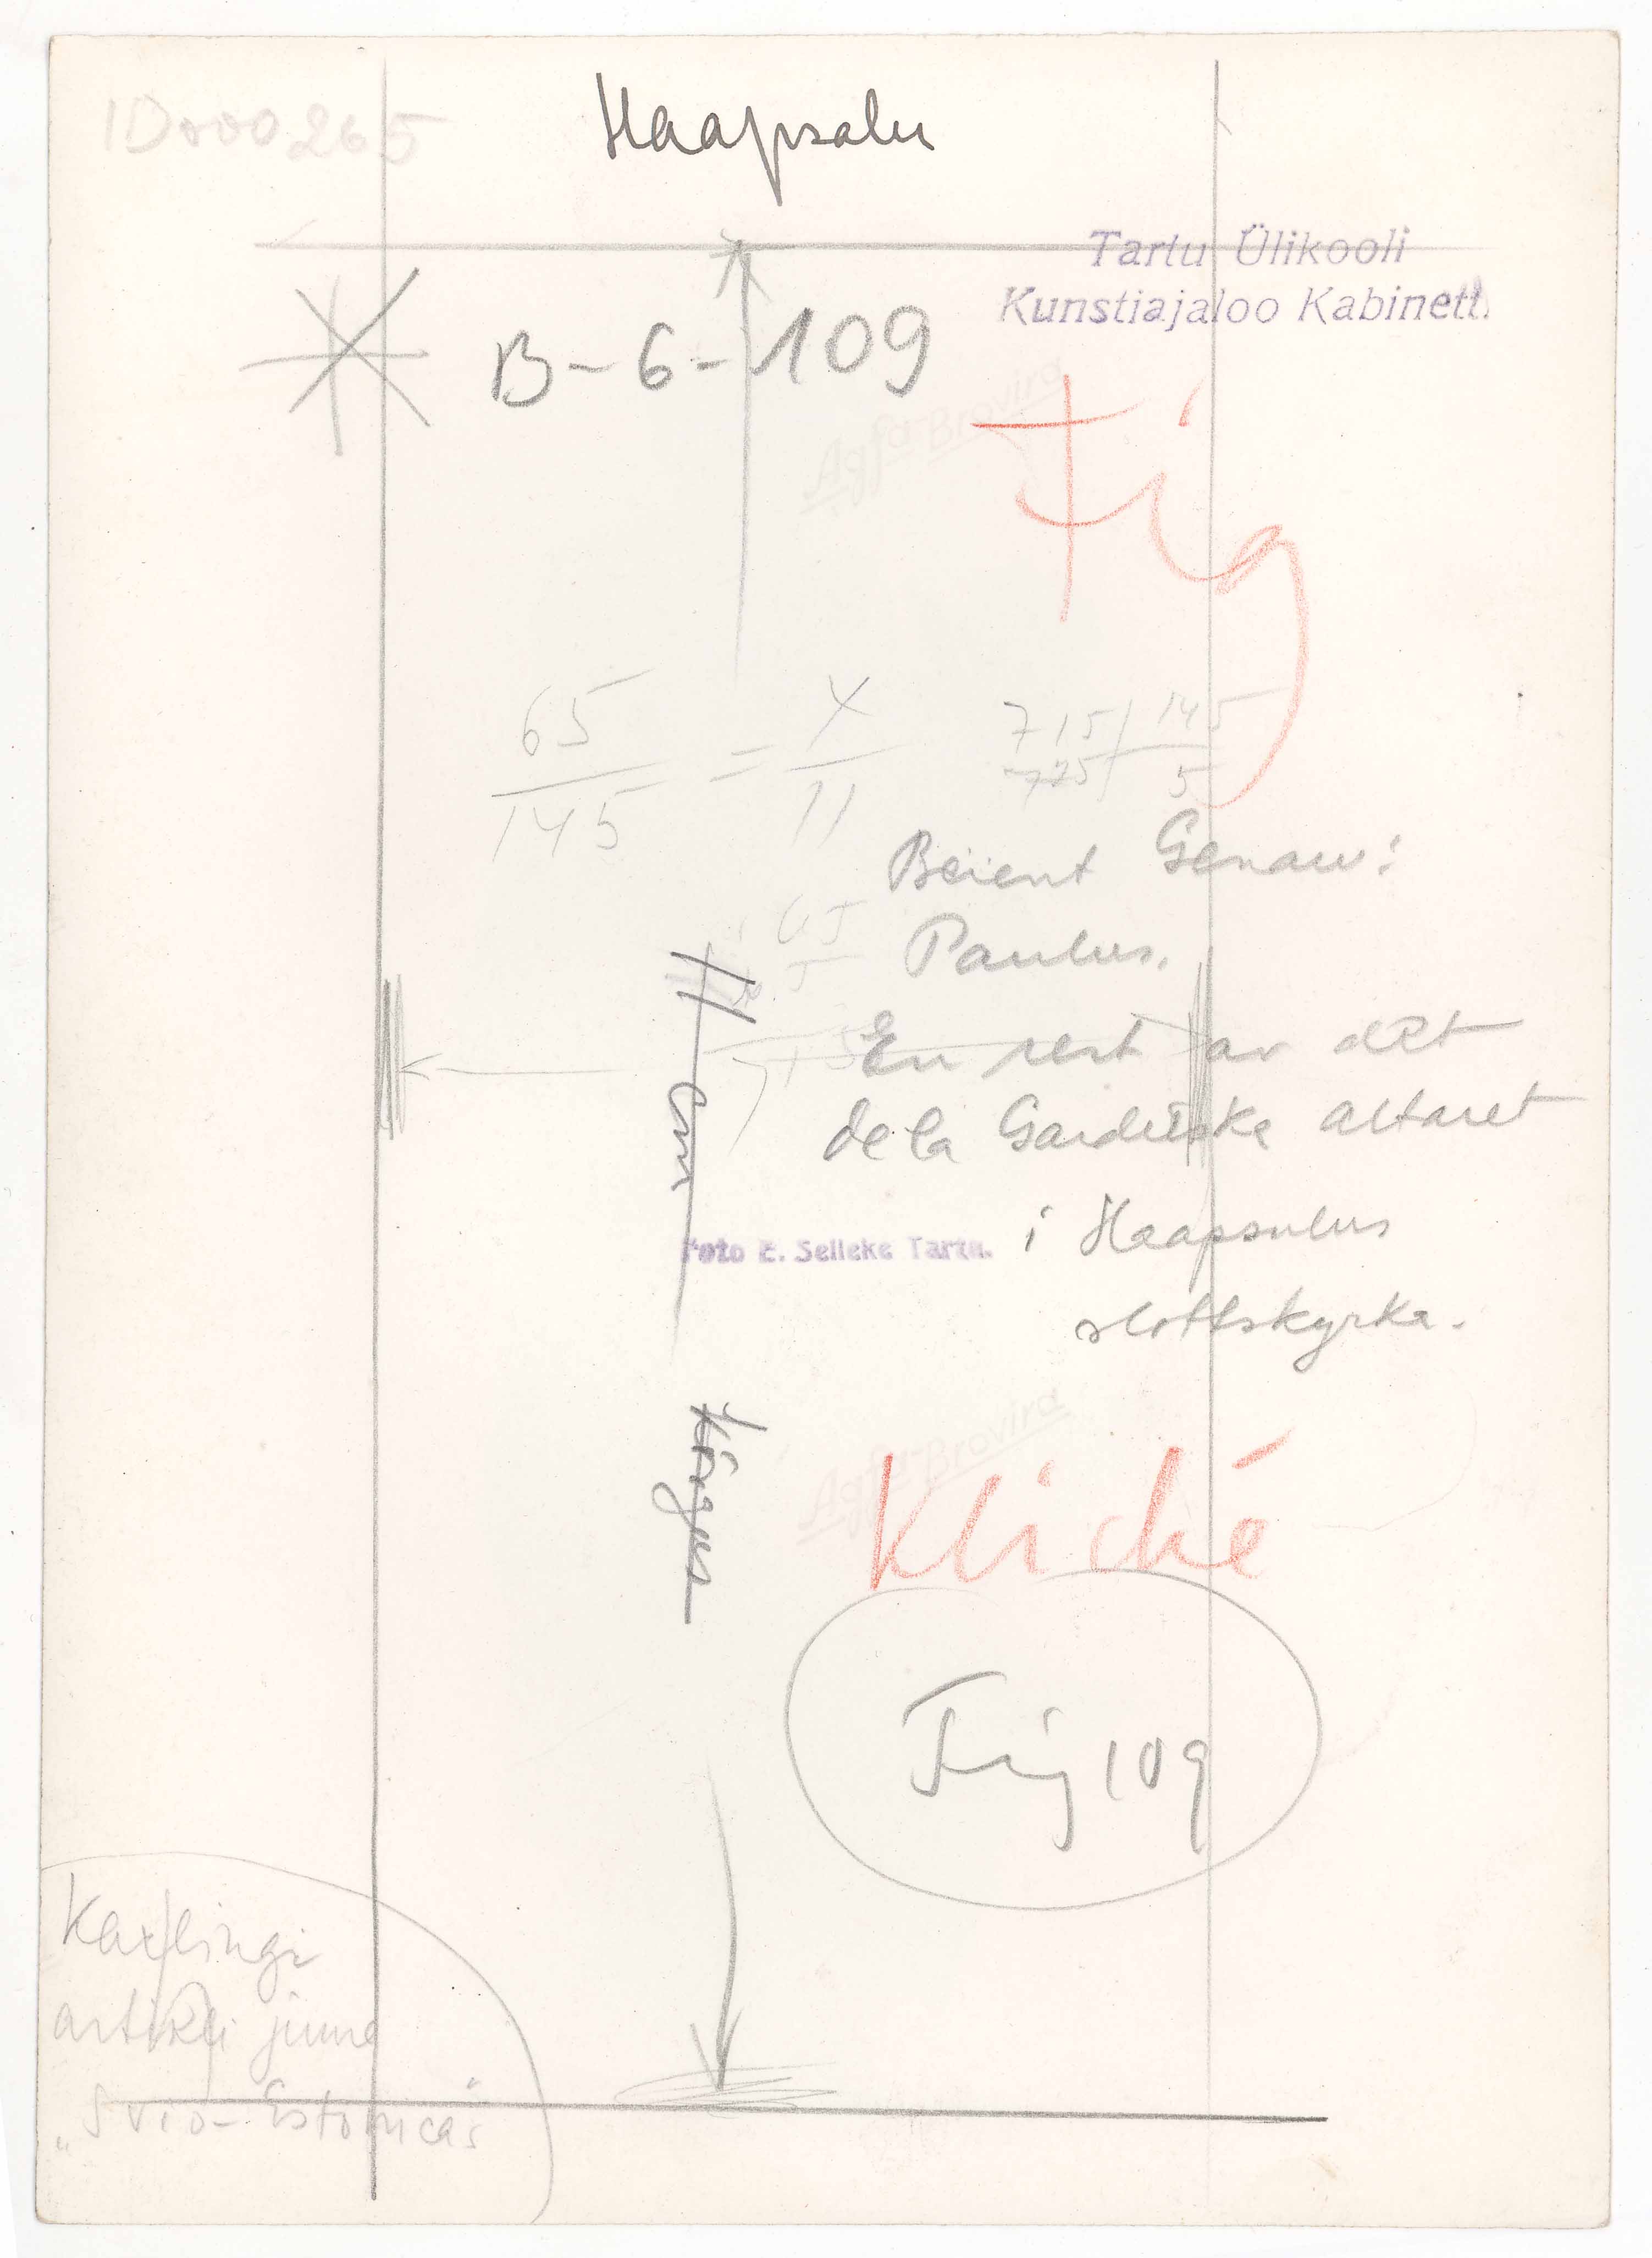 IDooo265
Haapsalu
Tartu Ülikooli
Kunstiajaloo Kabinett.
B-6-109
Agfa-Brovira
Fig
65
145
=
X
11
715 145
725 5
65
Paulus.
En rest av det
de la Gardieska altaret
i Haapsalus
slottskyrka.
11 cm
Foto E. Selleke Tartu.
kõrgus
Agfa-Brovira
Kliché
Fig 109
Karlingi
artikli juure
„Svio-Estonicas"